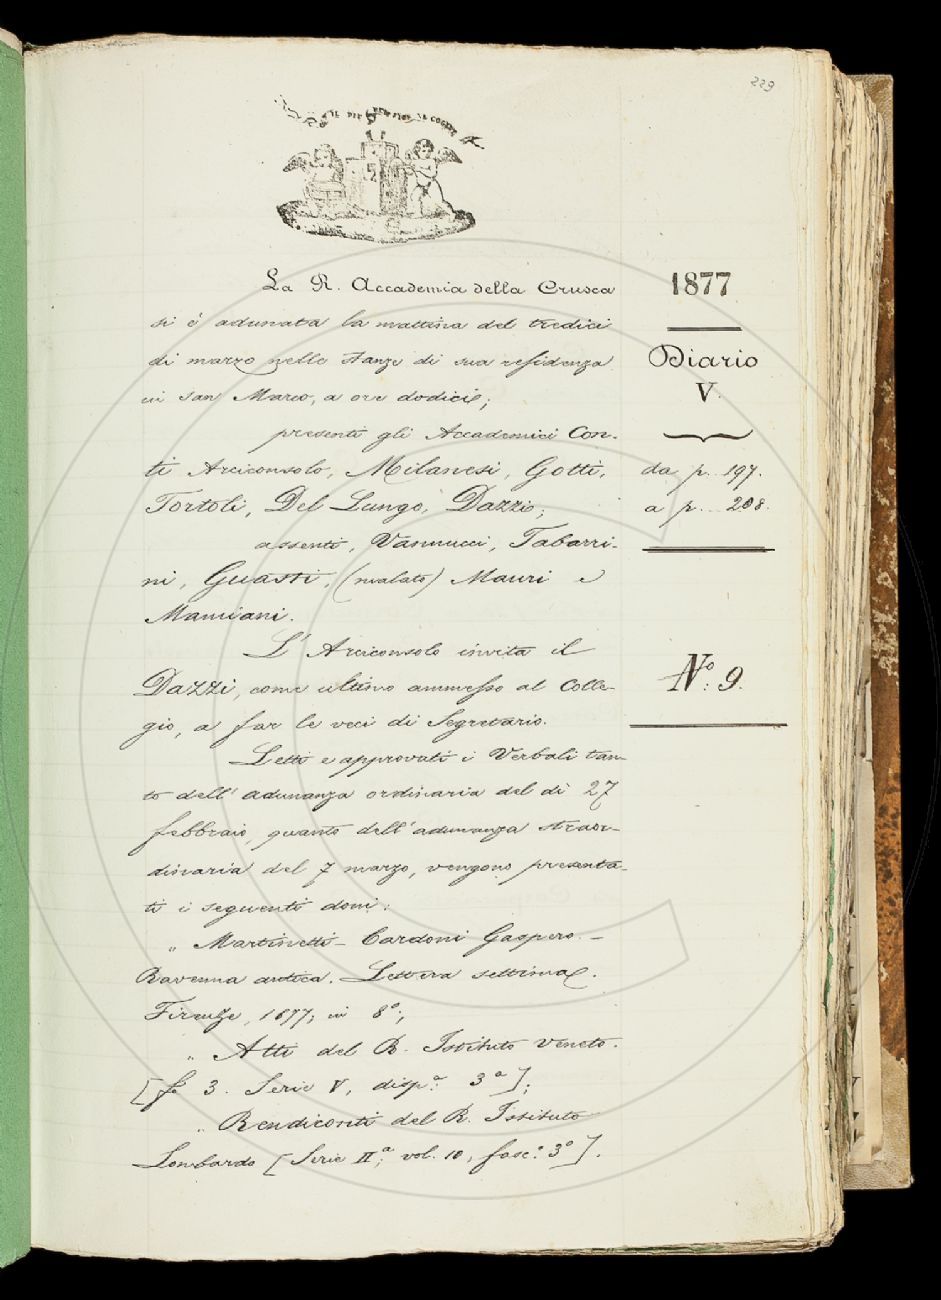 229
IL PIÙ BEL FIOR NE COGLIE
La R. Accademia della Crusca
si è adunata la mattina del tredici
di marzo nelle stanze di sua residenza
in san Marco, a ore dodici;
presenti gli Accademici Con-
ti Arciconsolo, Milanesi, Gotti,
Tortoli, Del Lungo, Dazzi;
assenti, Vannucci, Tabarri-
ni, Guasti, (malato) Mauri e
Mamiani.
L'Arciconsolo invita il
Dazzi, come ultimo ammesso al Colle-
gio, a far le veci di Segretario.
Letti e approvati i Verbali tan-
to dell'adunanza ordinaria del dì 27
febbraio, quanto dell'adunanza straor-
dinaria del 7 marzo, vengono presenta-
ti i seguenti doni:
" Martinetti-Cardoni Gaspero. -
Ravenna antica. Lettera settima.
Firenze, 1877; in 8°;
" Atti del R. Istituto Veneto.
3. Serie V, disp.ª 3ª];
" Rendiconti del R. Istituto
Lombardo [Serie II.ª; vol. 10, fasc.° 3°].
1877
Diario
V.
da p. 197.
a p. 208.
N.° 9.